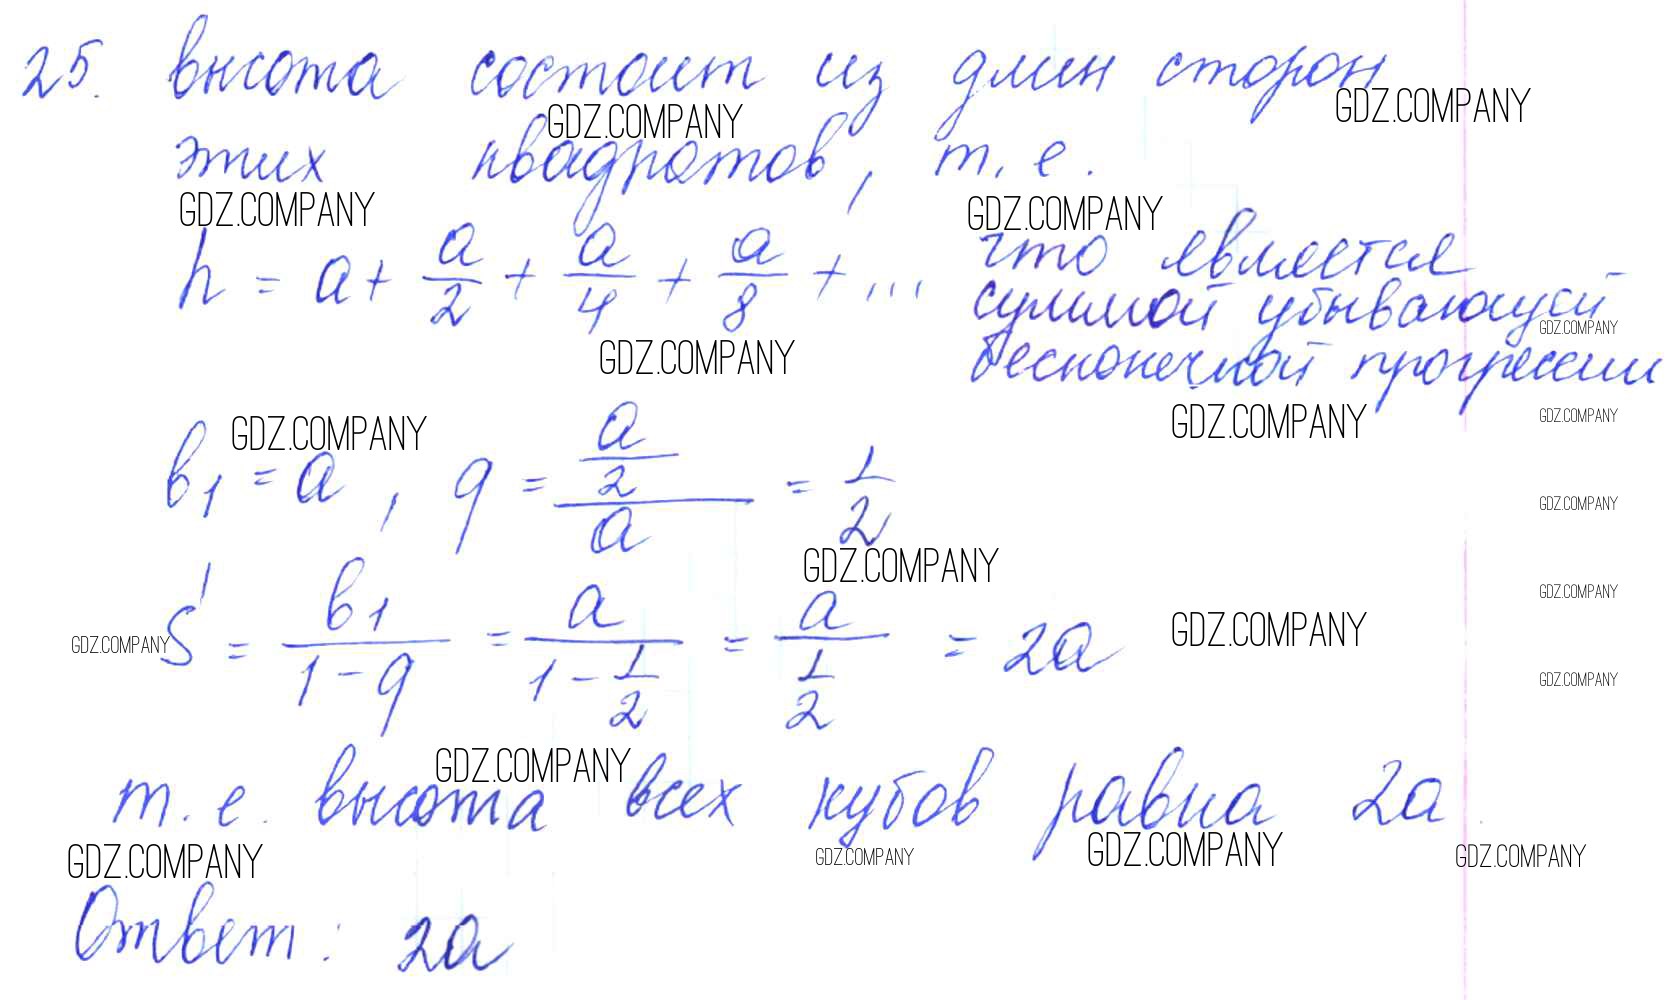 25. высота состоит из длин сторон
GDZ.COMPANY GDZ.COMPANY
этих квадратов, т. е.
GDZ.COMPANY GDZ.COMPANY
h = a + a/2 + a/4 + a/8 + ... что является
суммой убывающей
GDZ.COMPANY
бесконечной прогрессии
GDZ.COMPANY
GDZ.COMPANY GDZ.COMPANY GDZ.COMPANY
b1 = a, q = (a/2)/a = 1/2
GDZ.COMPANY
GDZ.COMPANY
GDZ.COMPANY
S = b1/(1-q) = a/(1-1/2) = a/(1/2) = 2a
GDZ.COMPANY GDZ.COMPANY
GDZ.COMPANY
GDZ.COMPANY
т. е. высота всех кубов равна 2a.
GDZ.COMPANY GDZ.COMPANY GDZ.COMPANY GDZ.COMPANY
Ответ: 2a